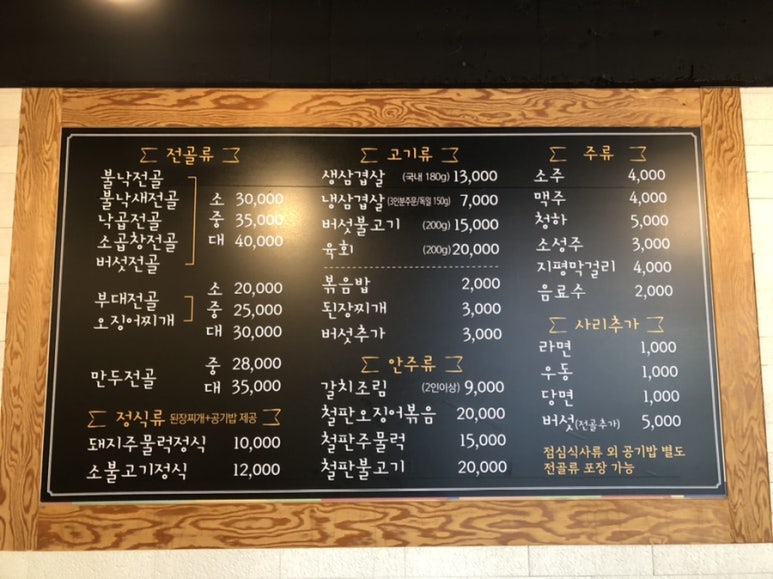 전골류
불낙전골
불낙새전골
낙곱전골
소곱창전골
버섯전골
소 30,000
중 35,000
대 40,000
부대전골
오징어찌개
소 20,000
중 25,000
대 30,000
만두전골
중 28,000
대 35,000
정식류 된장찌개+공기밥 제공
돼지주물럭정식 10,000
소불고기정식 12,000
고기류
생삼겹살 (국내 180g) 13,000
냉삼겹살 (3인분주문/독일 150g) 7,000
버섯불고기 (200g) 15,000
육회 (200g) 20,000
볶음밥 2,000
된장찌개 3,000
버섯추가 3,000
안주류
갈치조림 (2인이상) 9,000
철판오징어볶음 20,000
철판주물럭 15,000
철판불고기 20,000
주류
소주 4,000
맥주 4,000
청하 5,000
소성주 3,000
지평막걸리 4,000
음료수 2,000
사리추가
라면 1,000
우동 1,000
당면 1,000
버섯(전골추가) 5,000
점심식사류 외 공기밥 별도
전골류 포장 가능